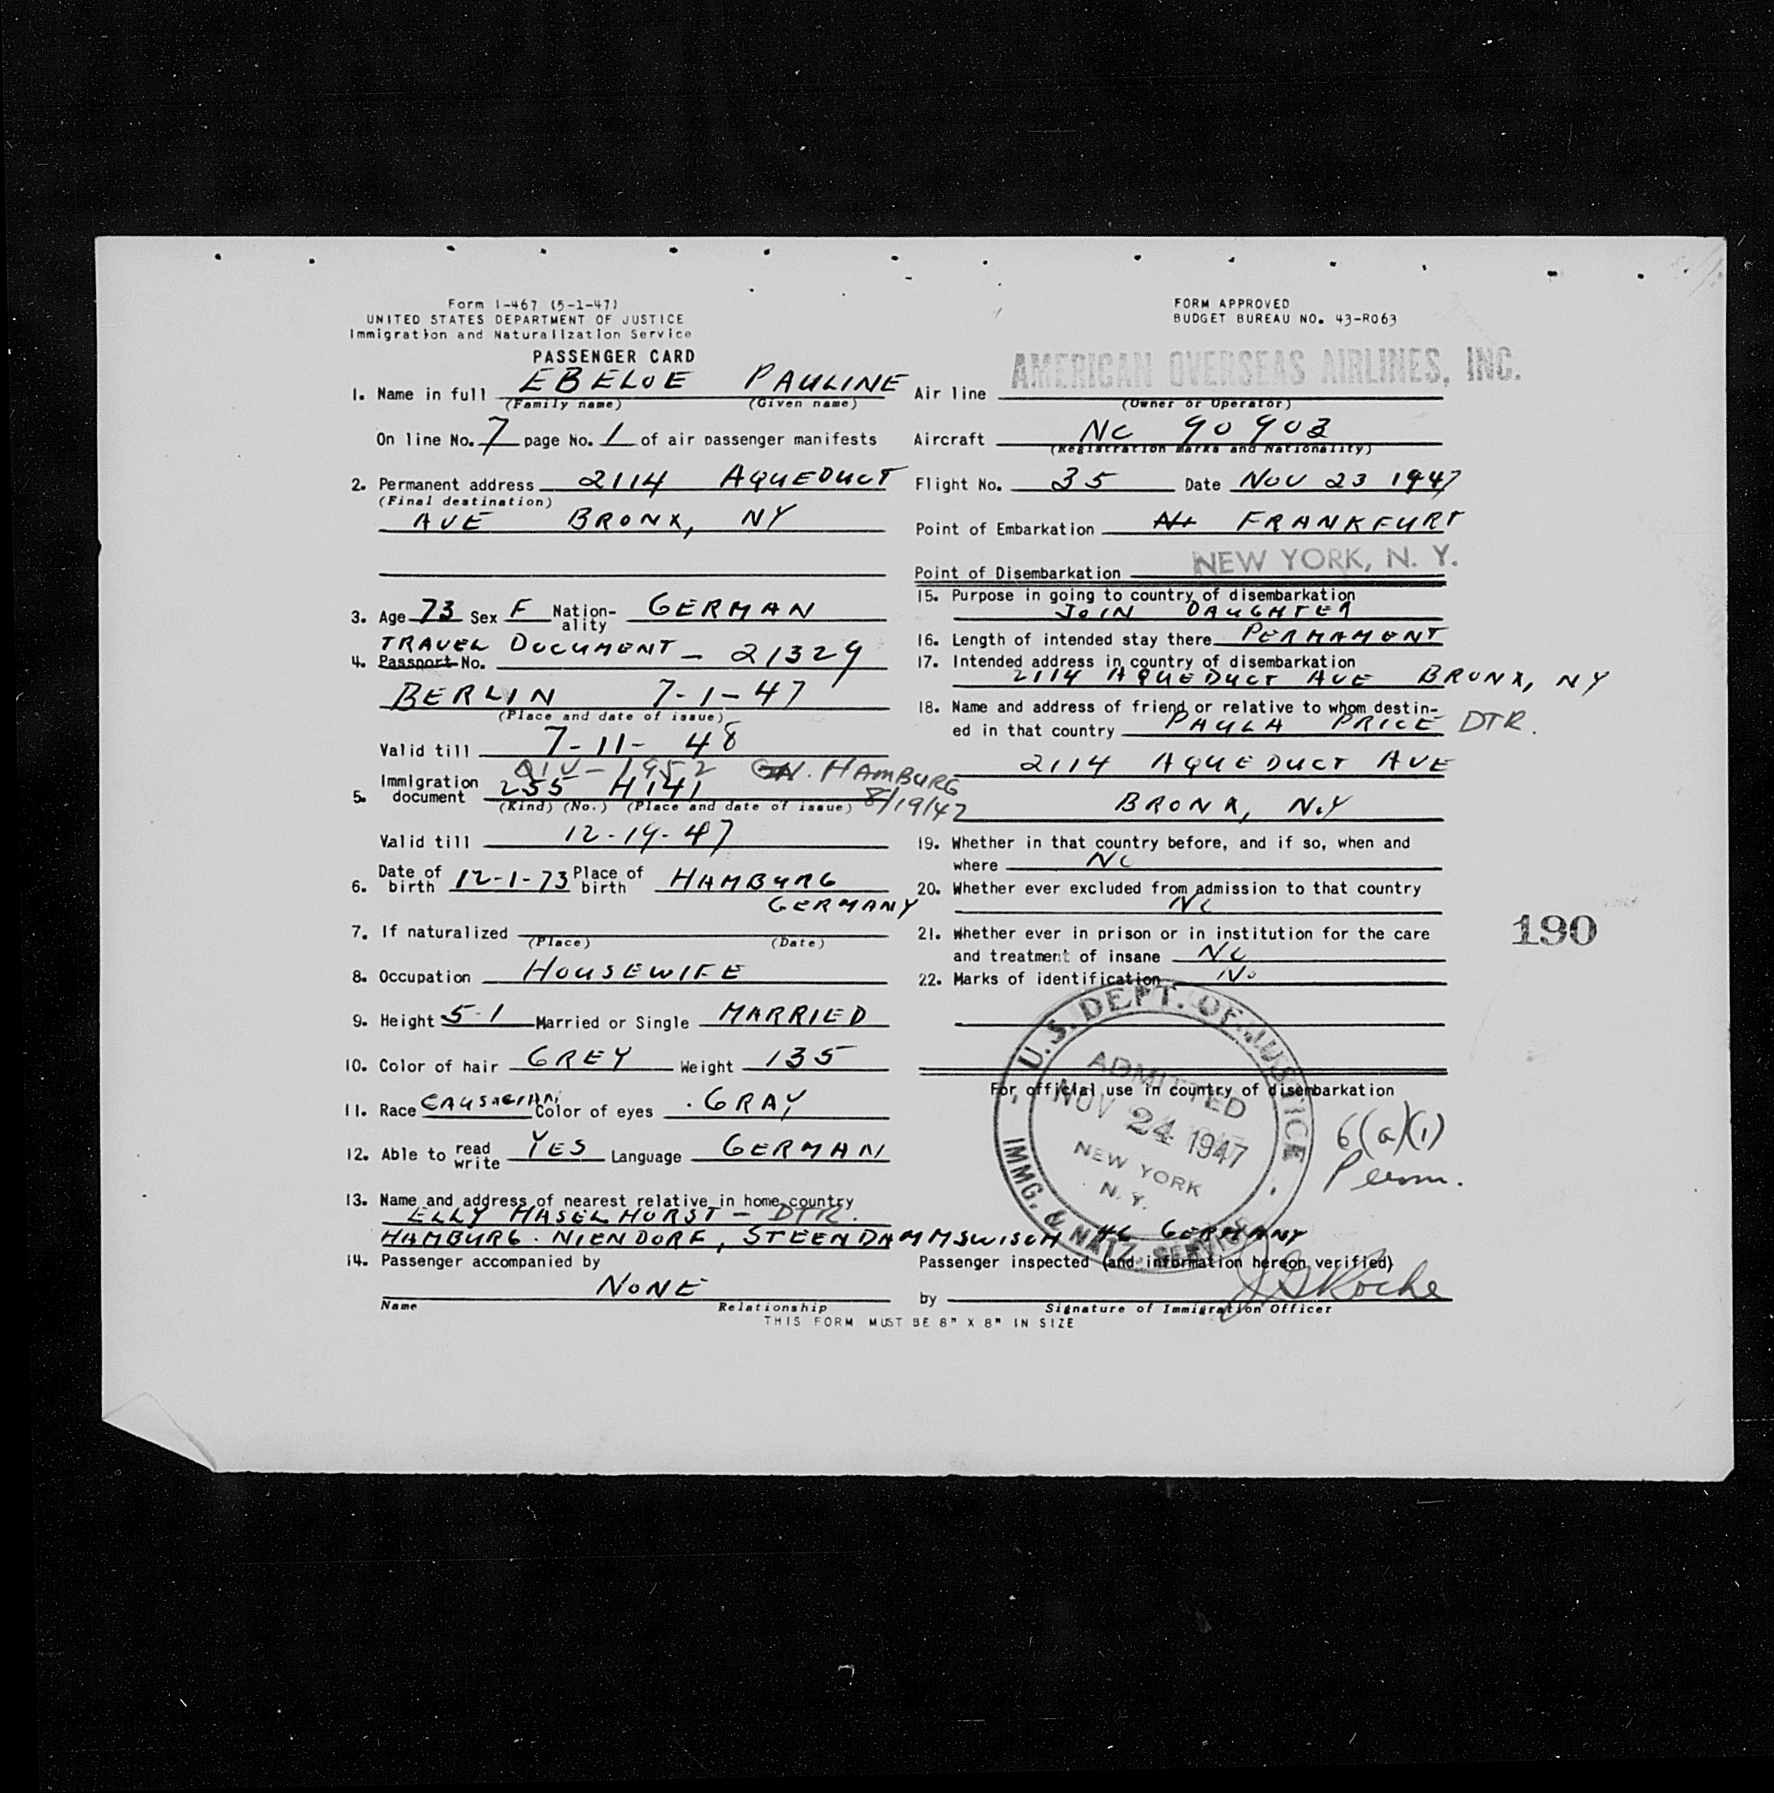 Form I-467 (5-1-47)
UNITED STATES DEPARTMENT OF JUSTICE
Immigration and Naturalization Service
PASSENGER CARD
1. Name in full EBELOE PAULINE
(Family name) (Given name)
On line No. 7 page No. 1 of air passenger manifests
2. Permanent address 2114 AQUEDUCT
(Final destination)
AVE BRONX, NY
3. Age 73 Sex F Nation-ality GERMAN
TRAVEL DOCUMENT - 21329
4. Passport No.
BERLIN 7-1-47
(Place and date of issue)
Valid till 7-11-48
QIV-1952 GN. HAMBURG
5. Immigration document 255 H141 8/19/47
(Kind) (No.) (Place and date of issue)
Valid till 12-19-47
6. Date of birth 12-1-73 Place of birth HAMBURG
GERMANY
7. If naturalized
(Place) (Date)
8. Occupation HOUSEWIFE
9. Height 5-1 Married or Single MARRIED
10. Color of hair GREY Weight 135
11. Race Color of eyes GRAY
12. Able to read write YES Language GERMAN
13. Name and address of nearest relative in home country
ELLY HASELHORST - DTR.
HAMBURG. NIENDORF, STEENDAMMSWISCH 46 GERMANY
14. Passenger accompanied by
NONE
Name Relationship
FORM APPROVED
BUDGET BUREAU NO. 43-R063
Air line AMERICAN OVERSEAS AIRLINES, INC.
(Owner or Operator)
Aircraft NC 90903
(Registration marks and Nationality)
Flight No. 35 Date NOV 23 1947
Point of Embarkation FRANKFURT
Point of Disembarkation NEW YORK, N. Y.
15. Purpose in going to country of disembarkation
JOIN DAUGHTER
16. Length of intended stay there PERMAMENT
17. Intended address in country of disembarkation
2114 AQUEDUCT AVE BRONX, NY
18. Name and address of friend or relative to whom destin-
ed in that country PAULA PRICE DTR.
2114 AQUEDUCT AVE
BRONX, N.Y
19. Whether in that country before, and if so, when and
where NO
20. Whether ever excluded from admission to that country
NO
21. Whether ever in prison or in institution for the care
and treatment of insane NO
22. Marks of identification No
190
For official use in country of disembarkation
U.S. DEPT. OF JUSTICE
IMMG. & NATZ. SERVICE
ADMITTED
NOV 24 1947
NEW YORK
N. Y.
6(a)(1)
Perm.
Passenger inspected (and information hereon verified)
by Roche
Signature of Immigration Officer
THIS FORM MUST BE 8" X 8" IN SIZE